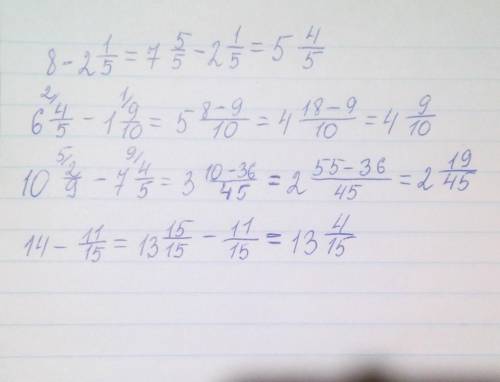 8 - 2 1/5 = 7 5/5 - 2 1/5 = 5 4/5
6 ²⁄4/5 - 1 ¹⁄9/10 = 5 (8-9)/10 = 4 (18-9)/10 = 4 9/10
10 ⁵⁄2/9 - 7 ⁹⁄4/5 = 3 (10-36)/45 = 2 (55-36)/45 = 2 19/45
14 - 11/15 = 13 15/15 - 11/15 = 13 4/15